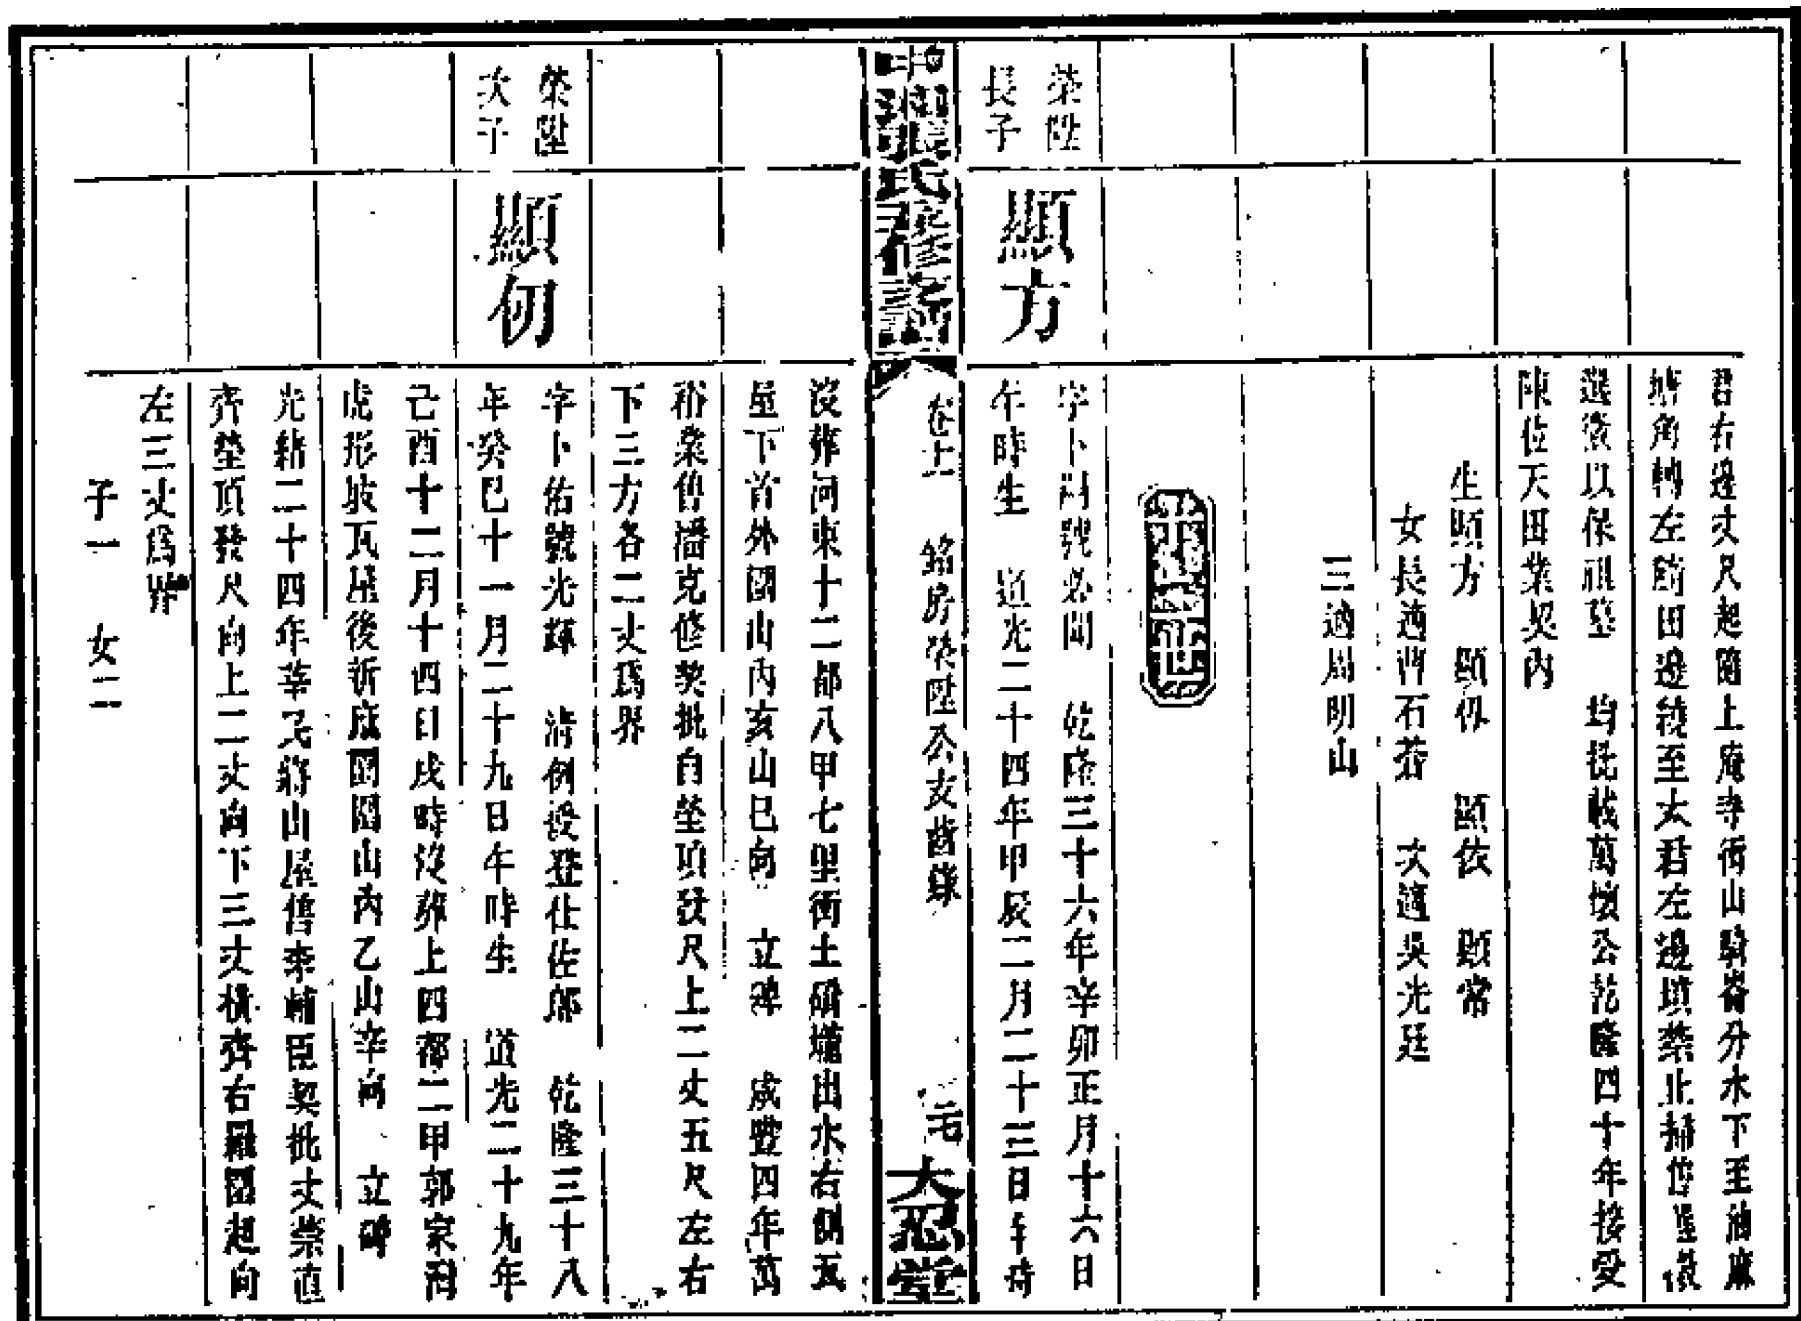 君右邊丈尺起隨上庵寺衝山騎崙分水下至油麻
塘角轉左騎田邊繞至太君左邊墳禁止掃借
選徵以保祖墓 均批載萬 公乾隆四十年接受
陳佐天田業契內
生顯方 顯仞 顯依 顯常
女長適曹石若 次適吳光廷
三適周明山
榮陞
長子
顯方
字卜 號必聞 乾隆三十六年辛卯正月十六日
午時生 道光二十四年甲辰二月二十三日午時
張氏 修譜
卷上 銘房榮陞公支齒錄
大忍堂
沒葬河東十二都八甲七里衝土 壠出水右側瓦
屋下首外園山內亥山巳向 立碑 咸豐四年萬
裕業售潘克修契批自塋頂發尺上二丈五尺左右
下三方各二丈爲界
榮陞
次子
顯仞
字卜佑號光輝 清例授登仕佐郎 乾隆三十八
年癸巳十一月二十九日午時生 道光二十九年
己酉十二月十四日戌時沒葬上四都二甲郭家
虎形坡瓦屋後新底園園山內乙山辛向 立碑
光緒二十四年莘民將山屋售李輔臣契批丈禁直
齊塋頂發尺向上二丈向下三丈橫齊右羅圍起向
左三丈爲界
子一 女二